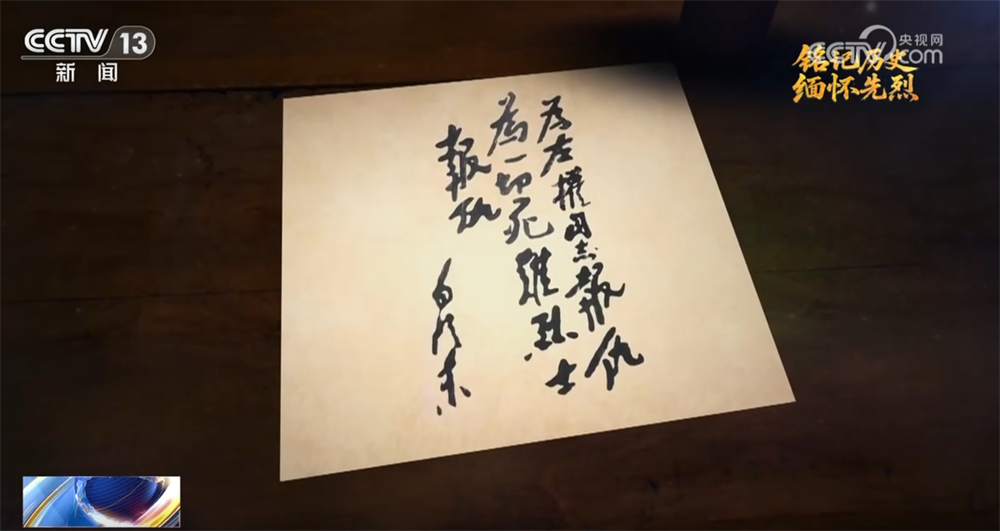 CCTV 13
新闻
央视网
CCTV.com
铭记历史
缅怀先烈
为左權同志報仇
為一切死難烈士
報仇